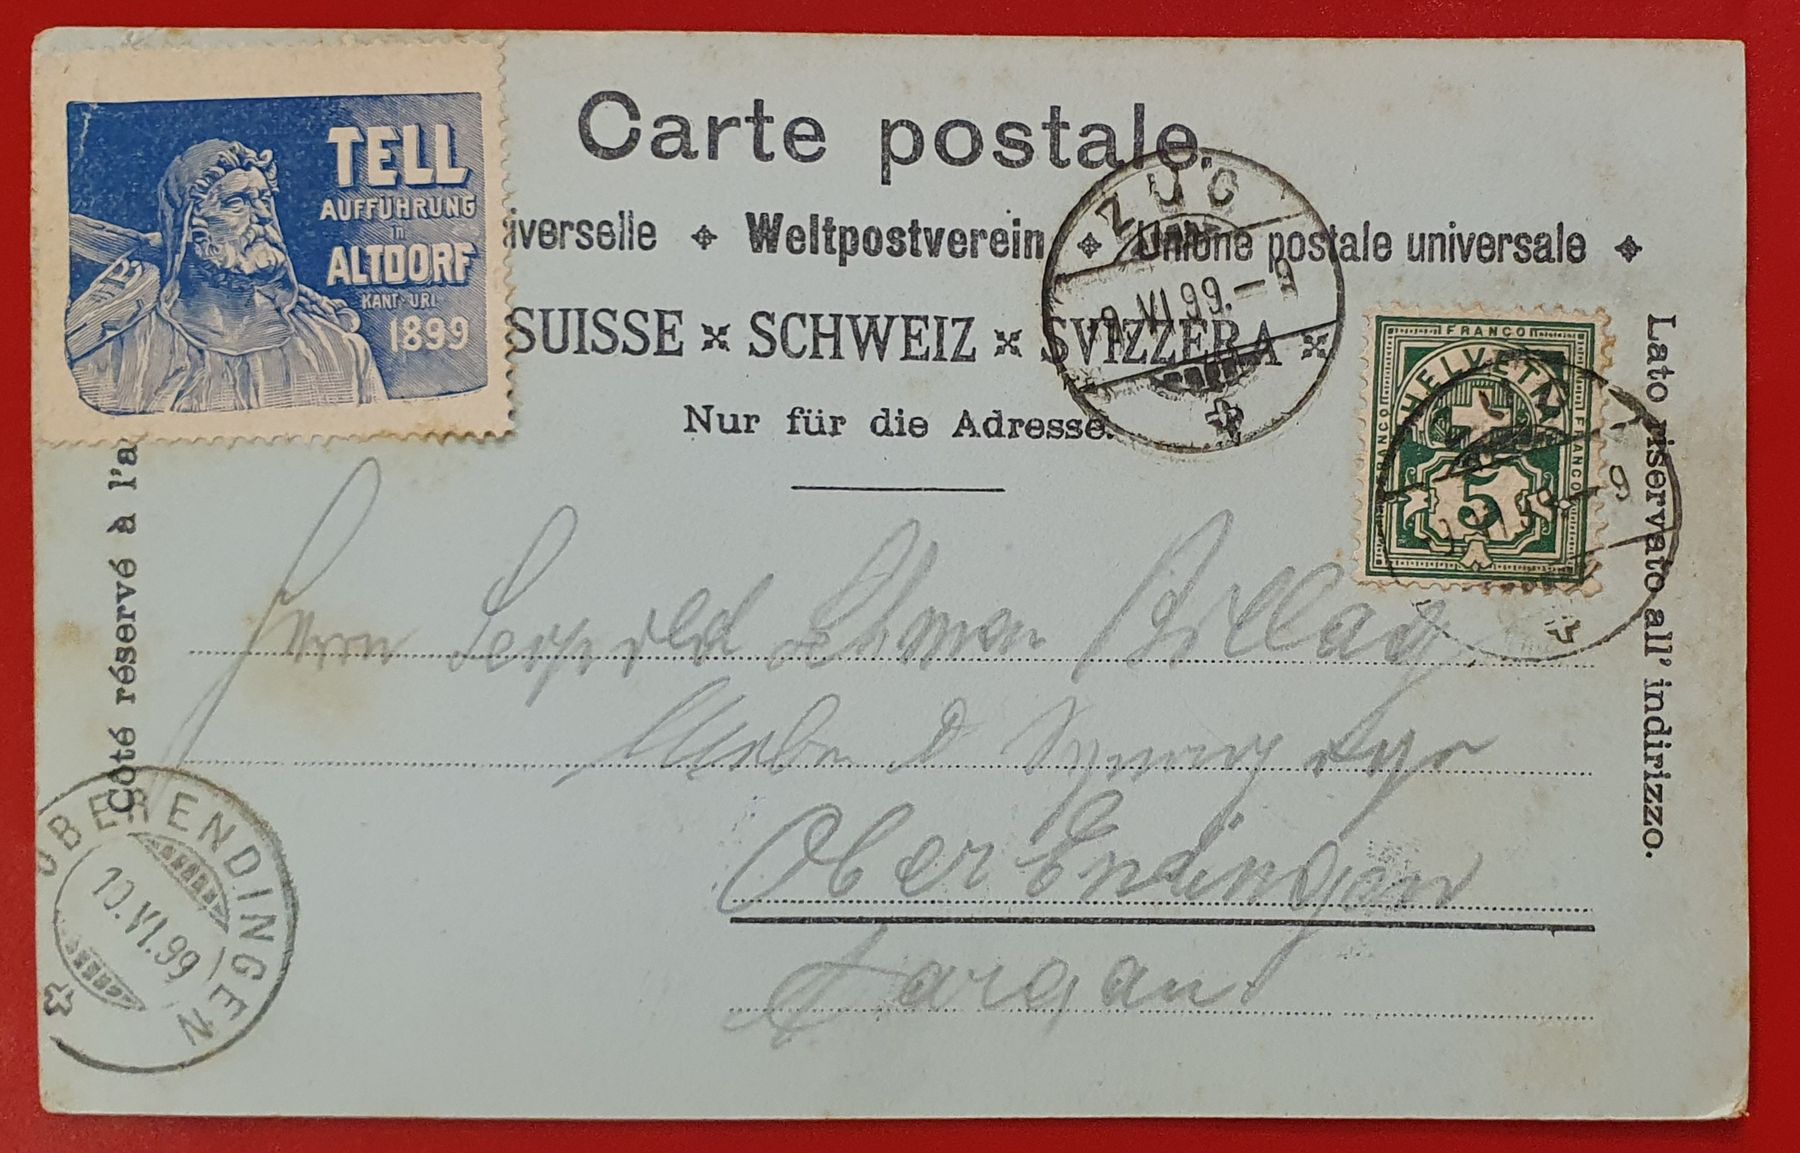 TELL
AUFFÜHRUNG
in
ALTDORF
KANT. URI
1899
Carte postale.
iverselle Weltpostverein Unione postale universale
SUISSE SCHWEIZ SVIZZERA
Nur für die Adresse.
ZUG
9.VI.99.-9
FRANCO
HELVETIA
FRANCO
FRANCO
5
Côté réservé à l'a
Lato riservato all' indirizzo.
Herrn Leopold
Ober Endingen
Aargau
OBERENDINGEN
10.VI.99